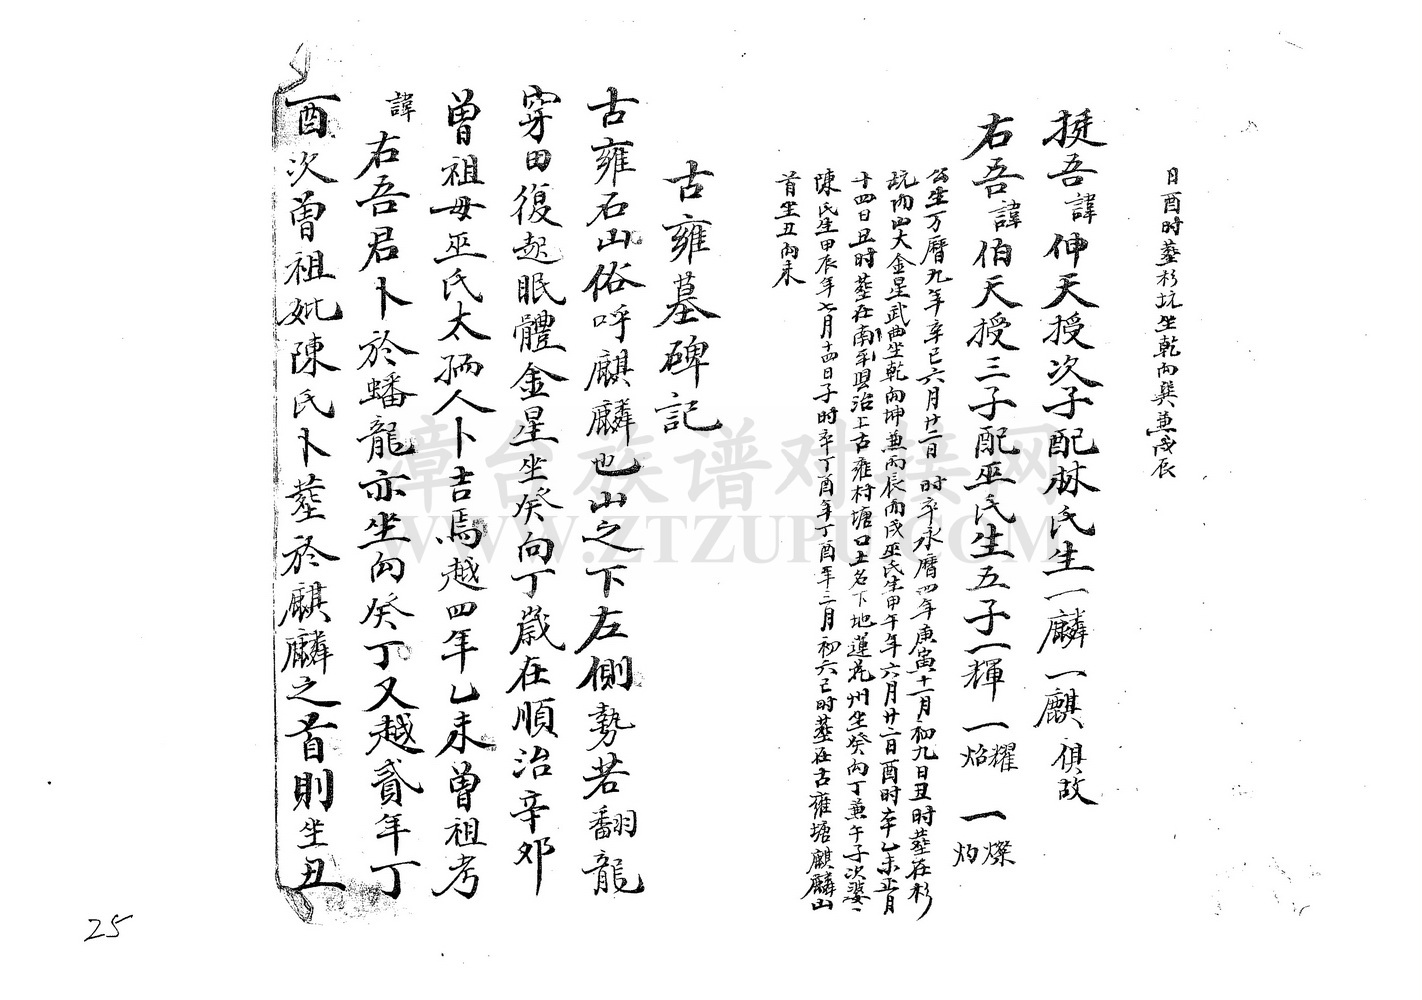 日酉時葬杉坑坐乾向巽兼戌辰
挺吾諱伸天授次子配林氏生一麟一麒俱故
右吾諱伯天授三子配巫氏生五子一輝一耀焰一燦灼
公生万曆九年辛巳六月廿二日 時卒永曆四年庚寅十一月初九日丑時葬在杉
坑內山大金星武曲坐乾向坤兼丙辰而戌巫氏生甲午年六月廿二日酉時卒乙未正月
十四日丑時葬在南平縣治上古雍村塘口土名下地蓮花州坐癸向丁兼午子次婆
陳氏生甲辰年七月十四日子時卒丁酉年丁酉年三月初六巳時葬在古雍塘麒麟山
首坐丑向未
古雍墓碑記
古雍石山俗呼麒麟也山之下左側勢若翻龍
穿田復起眠體金星坐癸向丁歲在順治辛卯
曾祖母巫氏太孺人卜吉焉越四年乙未曾祖考
諱右吾君卜於蟠龍亦坐向癸丁又越貳年丁
酉次曾祖妣陳氏卜葬於麒麟之首則坐丑
25
漳台族谱对接网
WWW.ZTZUPU.COM